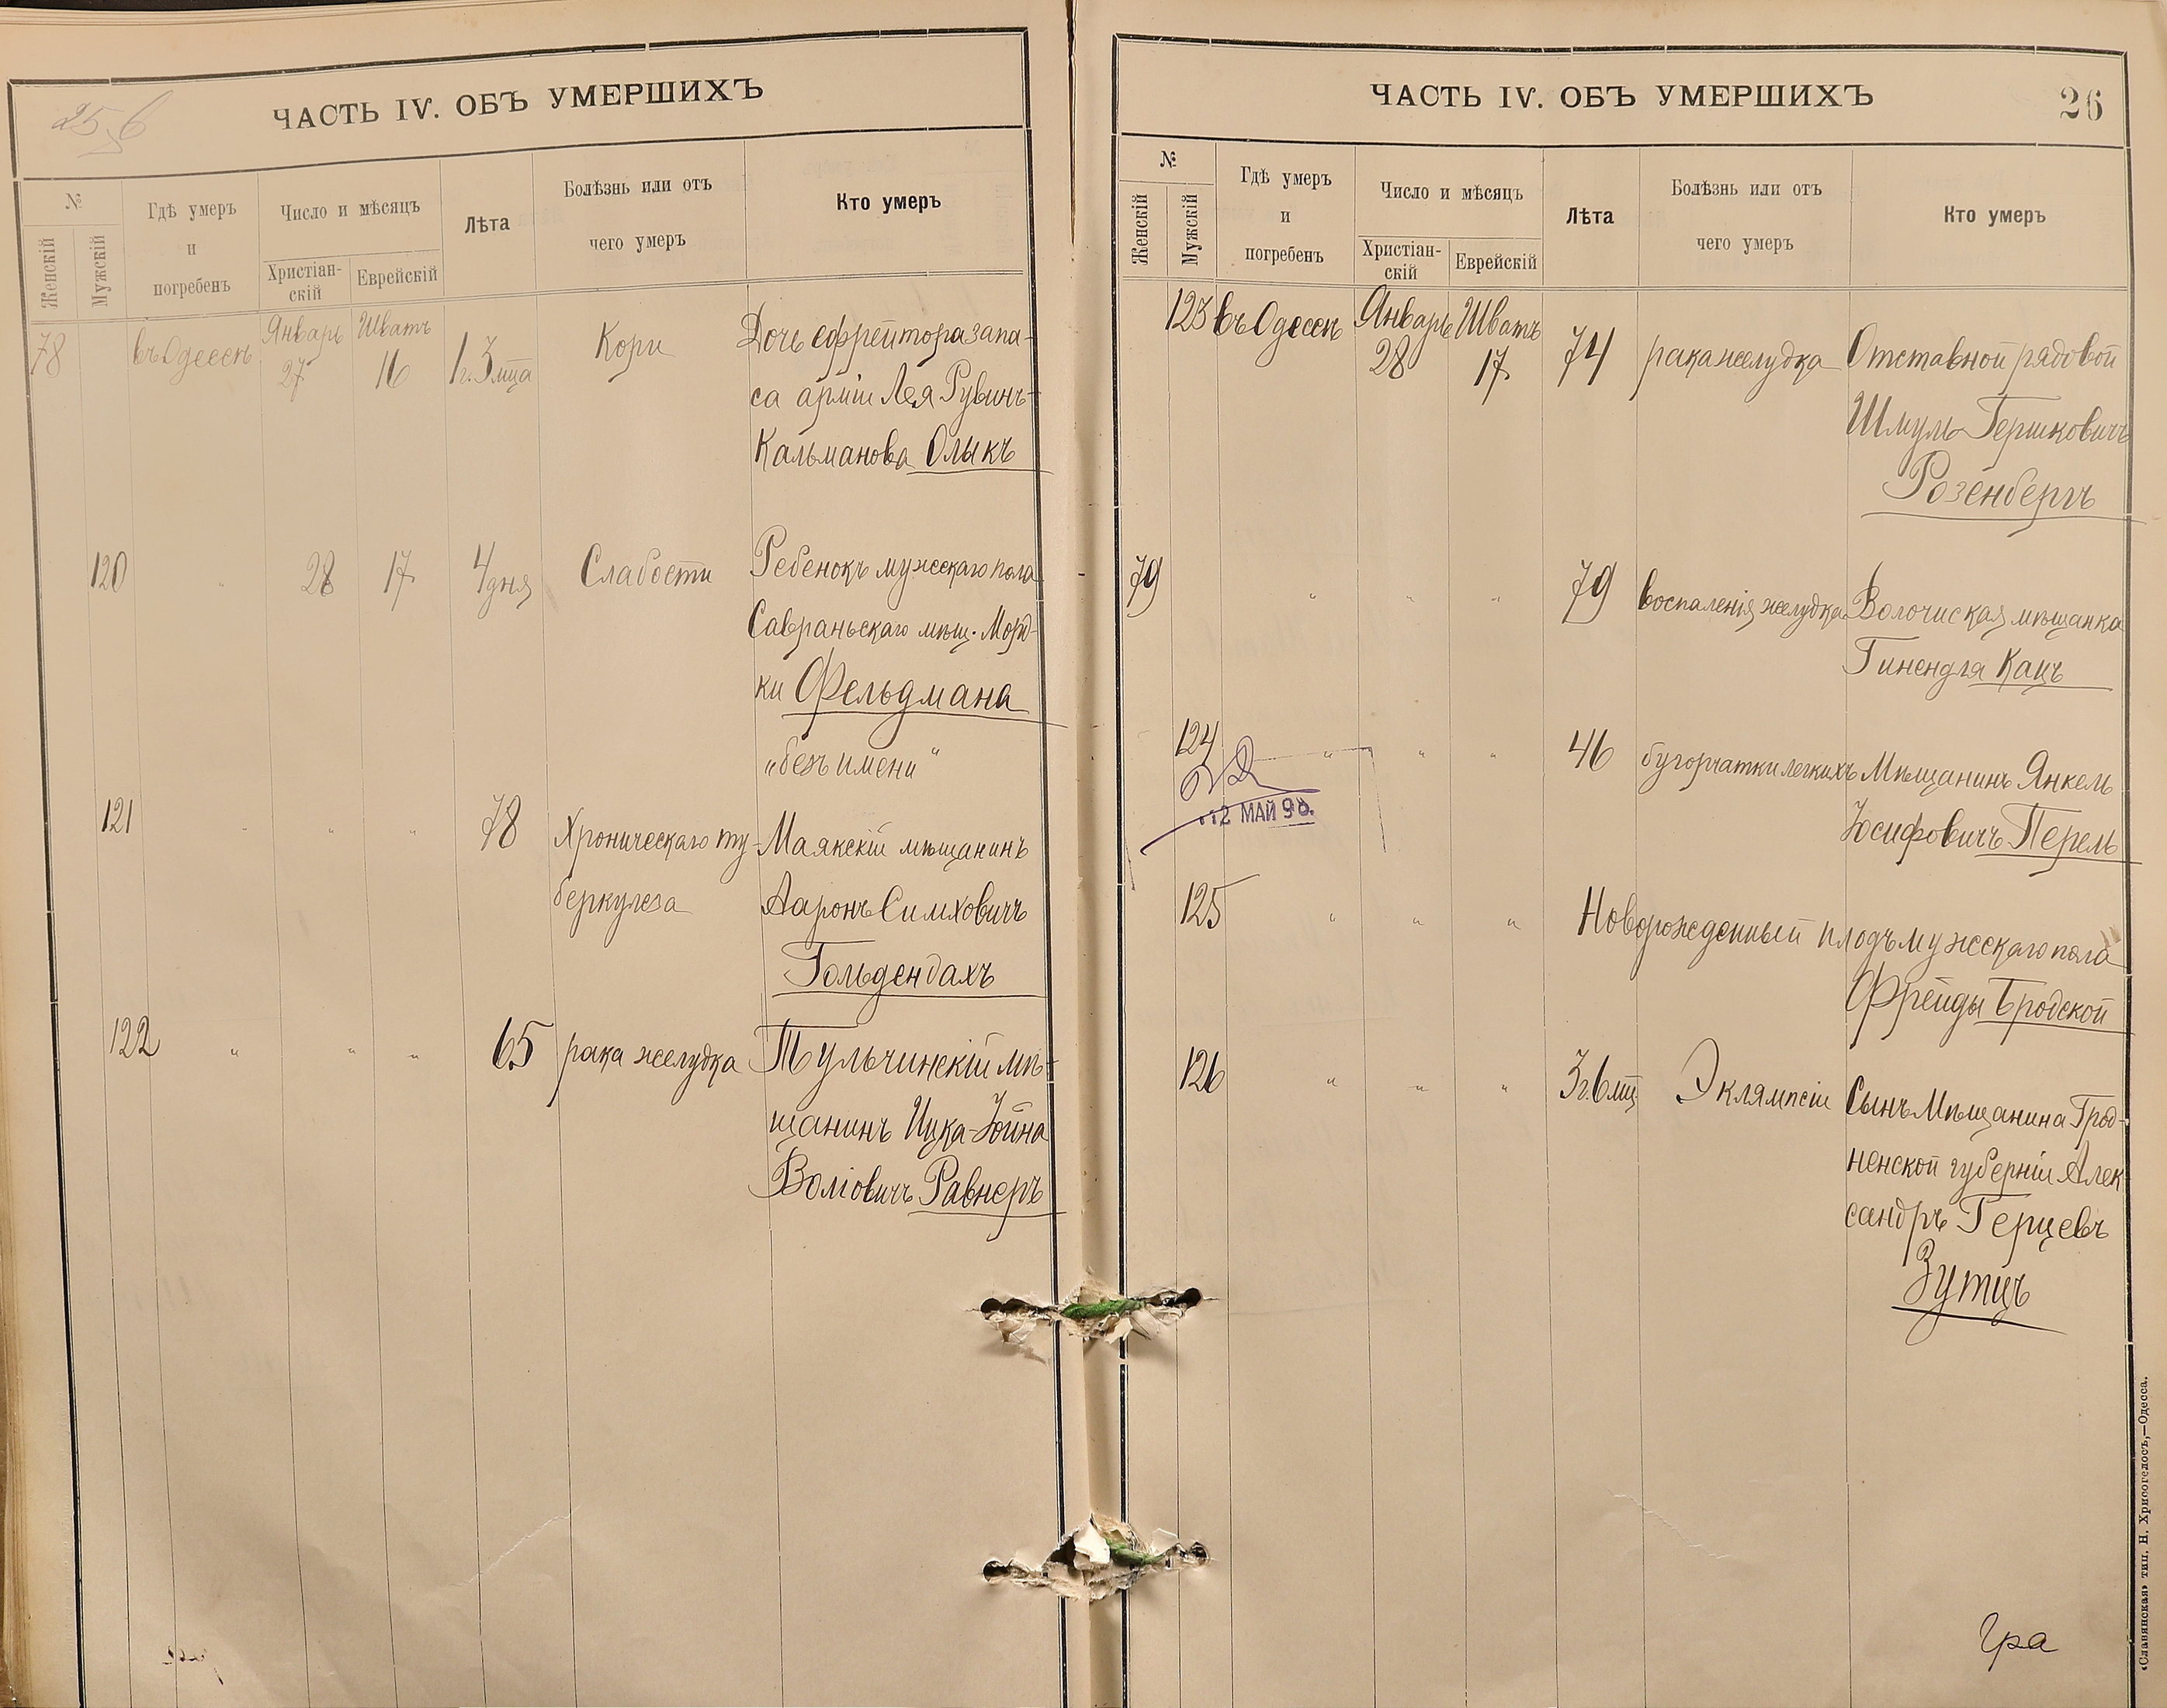 ЧАСТЬ IV. ОБЪ УМЕРШИХЪ
№
Женскій
Мужскій
Гдѣ умеръ
и
погребенъ
Число и мѣсяцъ
Христіан-
скій
Еврейскій
Лѣта
Болѣзнь или отъ
чего умеръ
Кто умеръ
78 въ Одессѣ Январь 27 Шватъ 16 1 г. 3 мца Кори Дочь ефрейтора запа-
са арміи Лея Рувинъ-
Кальманова Олыкъ
120 " 28 17 4 дня Слабости Ребенокъ мужескаго пола
Савраньскаго мѣщ. Морд-
ки Фельдмана
"безъ имени"
121 " " " 78 Хроническаго ту- Маякскій мѣщанинъ
беркулеза Ааронъ Симховичъ
Гольдендахъ
122 " " " 65 рака желудка Тульчинскій мѣ-
щанинъ Ицка-Іойна
Волiовичъ Равнеръ
ЧАСТЬ IV. ОБЪ УМЕРШИХЪ
26
№
Женскій
Мужскій
Гдѣ умеръ
и
погребенъ
Число и мѣсяцъ
Христіан-
скій
Еврейскій
Лѣта
Болѣзнь или отъ
чего умеръ
Кто умеръ
123 въ Одессѣ Январь 28 Шватъ 17 74 рака желудка Отставной рядовой
Шмуль Гершковичъ
Розенбергъ
79 " " " 79 воспаленія желудка Волочиская мѣщанка
Гинендля Кацъ
124 " " " 46 бугорчатки легкихъ Мѣщанинъ Янкель
Іосифовичъ Перель
12 МАЙ 98.
125 " " " Новорожденный плодъ мужескаго пола
Фрейды Бродской
126 " " " 3 г. 6 мц Эклямпсіи Сынъ Мѣщанина Грод-
ненской губерніи Алек
сандръ Герцевъ
Зутцъ
«Славянская» тип. Н. Хрисогелосъ,—Одесса.